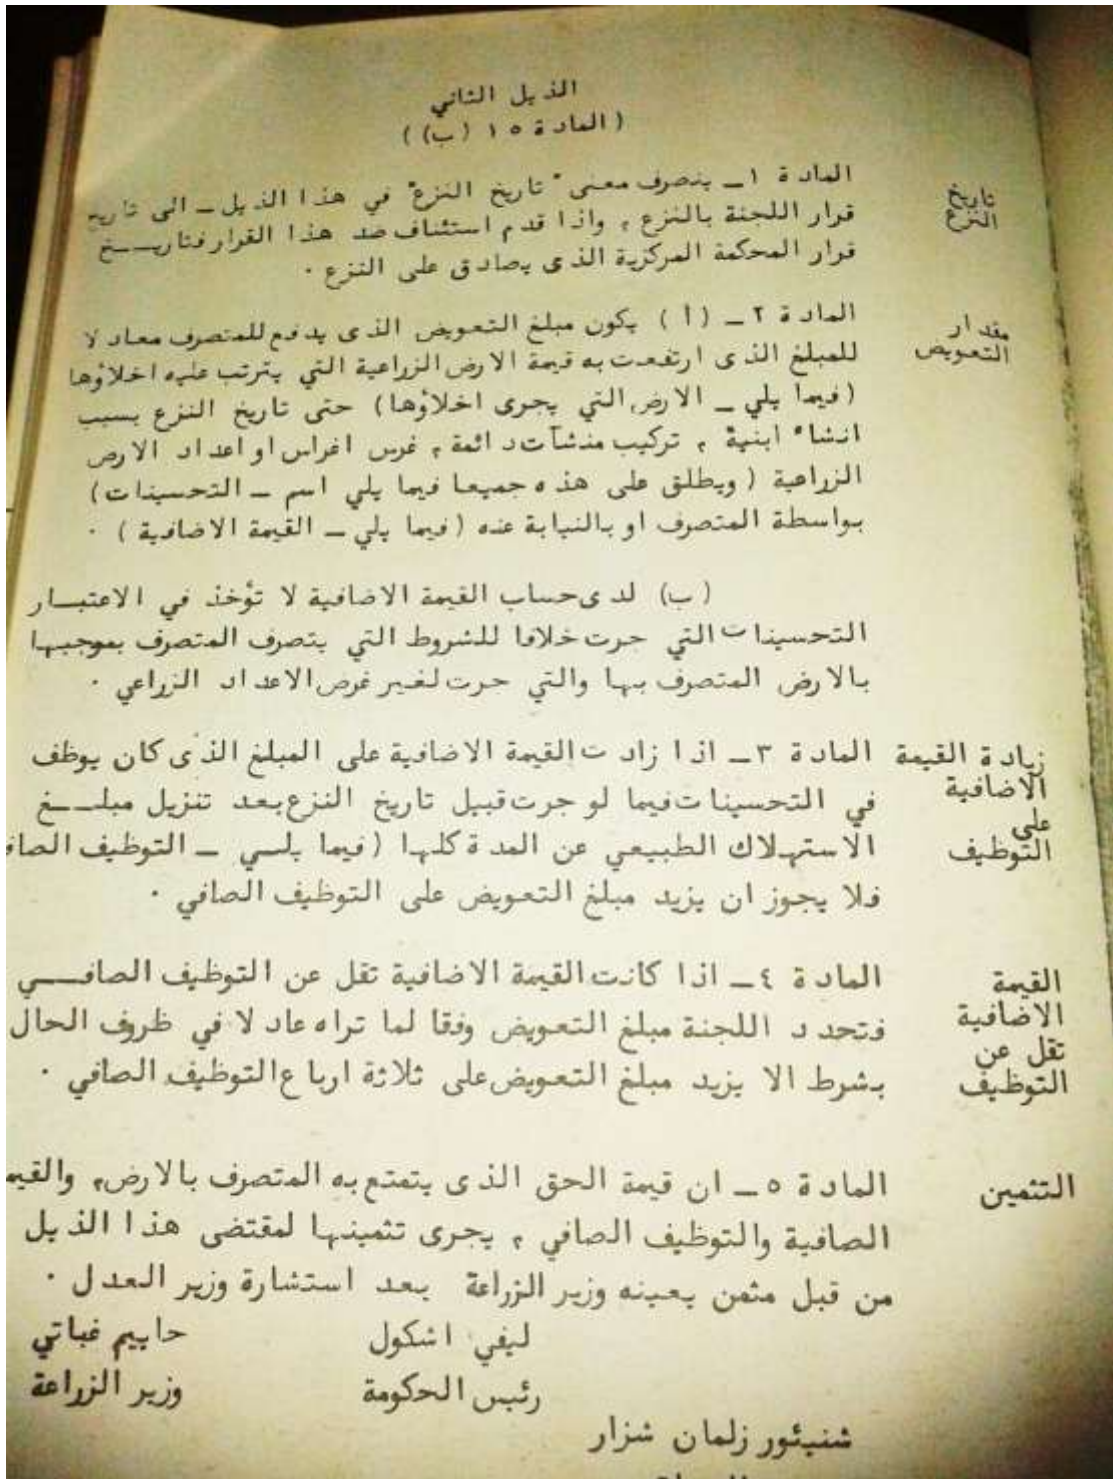 الذيل الثاني
(المادة ١٥ (ب))
تاريخ
النزع
المادة ١ـ ينصرف معنى "تاريخ النزع" في هذا الذيل ـ الى تاريخ
قرار اللجنة بالنزع ، واذا قدم استئناف ضد هذا القرار فتاريـــخ
قرار المحكمة المركزية الذى يصادق على النزع ٠
مقدار
التعويض
المادة ٢ـ (أ) يكون مبلغ التعويض الذى يدفع للمتصرف معادلا
للمبلغ الذى ارتفعت به قيمة الارض الزراعية التي يترتب عليه اخلاؤها
(فيما يلي ـ الارض التي يجرى اخلاؤها) حتى تاريخ النزع بسبب
انشاء ابنية ، تركيب منشآت دائمة ، غرس اغراس او اعداد الارض
الزراعية (ويطلق على هذه جميعا فيما يلي اسم ـ التحسينات)
بواسطة المتصرف او بالنيابة عنه (فيما يلي ـ القيمة الاضافية) ٠
(ب) لدى حساب القيمة الاضافية لا تؤخذ في الاعتبـــار
التحسينات التي جرت خلافا للشروط التي يتصرف المتصرف بموجبها
بالارض المتصرف بها والتي جرت لغير غرض الاعداد الزراعي ٠
زيادة القيمة
الاضافية
على
التوظيف
المادة ٣ـ اذا زادت القيمة الاضافية على المبلغ الذى كان يوظف
في التحسينات فيما لو جرت قبيل تاريخ النزع بعد تنزيل مبلـــغ
الاستهلاك الطبيعي عن المدة كلها (فيما يلـــي ـ التوظيف الصاف
فلا يجوز ان يزيد مبلغ التعويض على التوظيف الصافي ٠
القيمة
الاضافية
تقل عن
التوظيف
المادة ٤ـ اذا كانت القيمة الاضافية تقل عن التوظيف الصافـــي
فتحدد اللجنة مبلغ التعويض وفقا لما تراه عادلا في ظروف الحال
بشرط الا يزيد مبلغ التعويض على ثلاثة ارباع التوظيف الصافي ٠
التثمين
المادة ٥ـ ان قيمة الحق الذى يتمتع به المتصرف بالارض، والقيم
الصافية والتوظيف الصافي ، يجرى تثمينها لمقتضى هذا الذيل
من قبل مثمن يعينه وزير الزراعة بعد استشارة وزير العدل ٠
ليفي اشكول
حاييم غباتي
رئيس الحكومة
وزير الزراعة
شنيئور زلمان شزار